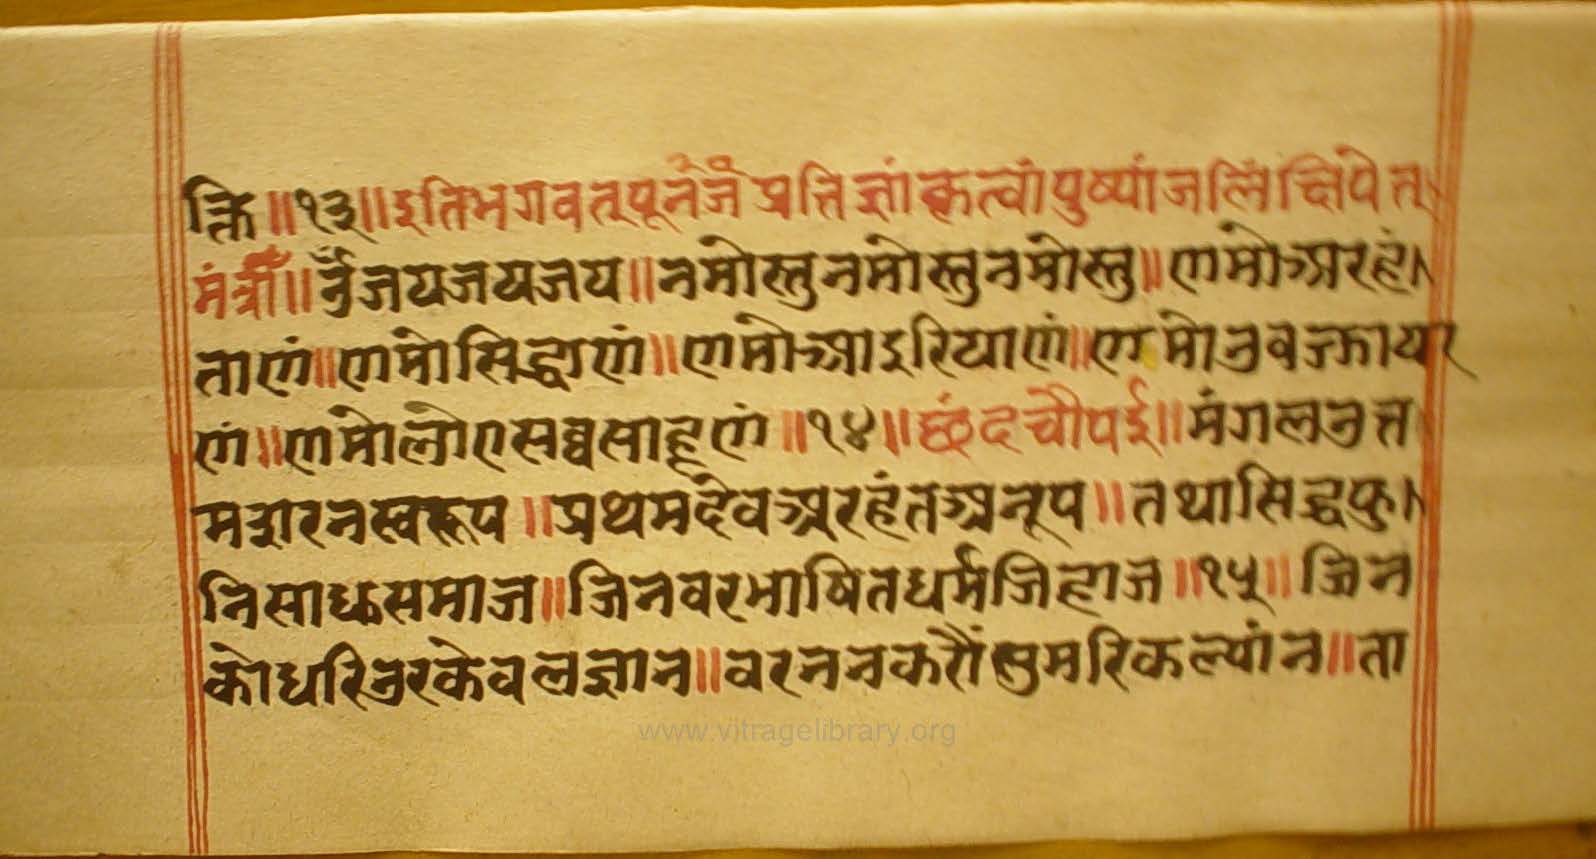 क्ति॥१३॥इतिभगवत्पूजनै प्रतिज्ञांकृत्वांपुष्पांजलिंक्षिपेत्
मंत्री॥ ॐजयजयजय॥नमोस्तुनमोस्तुनमोस्तु॥णमोअरहं
ताणं॥णमोसिद्धाणं॥णमोआइरियाणं॥णमोउवज्झाया
णं॥णमोलोएसव्वसाहूणं॥१४॥छंदचौपई॥मंगलउत्त
मशरनस्वरूप॥प्रथमदेवअरहंतअनूप॥तथासिद्धफु
निसाधसमाज॥जिनवरभाषितधर्मजिहाज॥१५॥जिन
कोधरिउरकेवलज्ञान॥वरननकरौंसुमरिकल्यांन॥ता
www.vitragelibrary.org